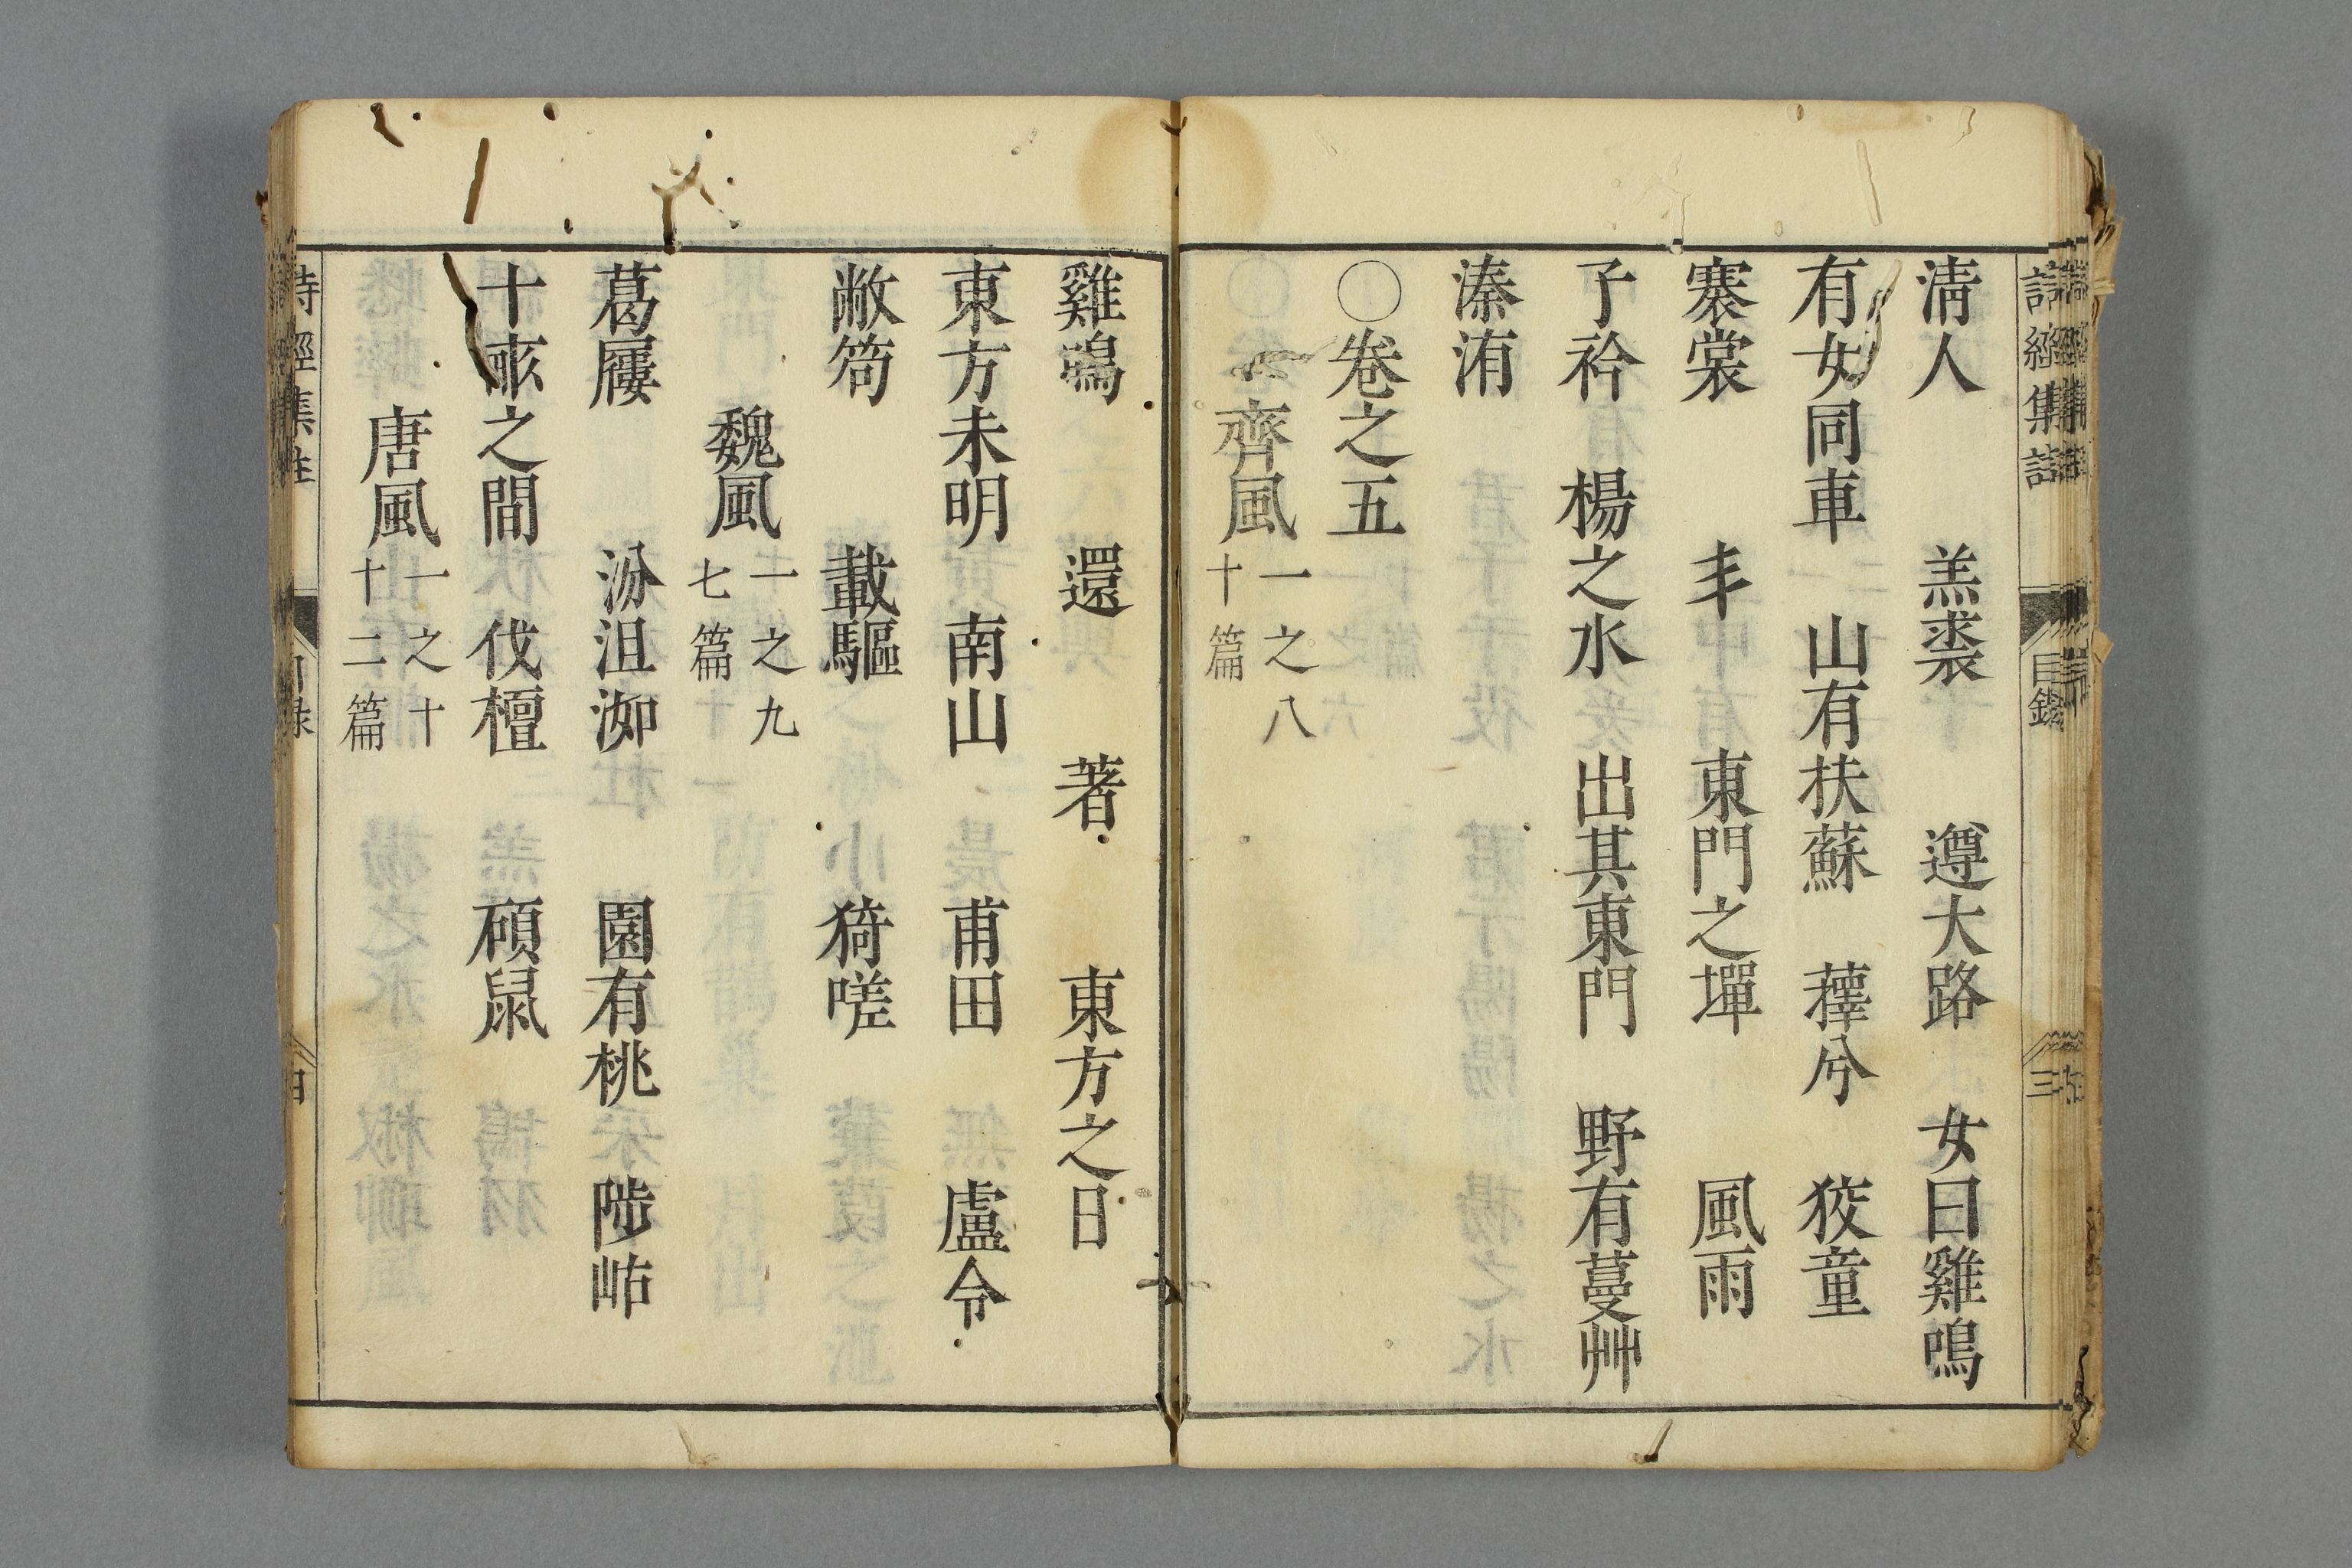 詩經集註 目錄 三
清人 羔裘 遵大路 女曰雞鳴
有女同車 山有扶蘇 蘀兮 狡童
褰裳 丰 東門之墠 風雨
子衿 楊之水 出其東門 野有蔓艸
溱洧
〇卷之五
齊風 一之八 十篇
雞鳴 還 著 東方之日
東方未明 南山 甫田 盧令
敝笱 載驅 猗嗟
魏風 一之九 七篇
葛屨 汾沮洳 園有桃 陟岵
十畝之間 伐檀 碩鼠
唐風 一之十 十二篇
詩經集註 目錄